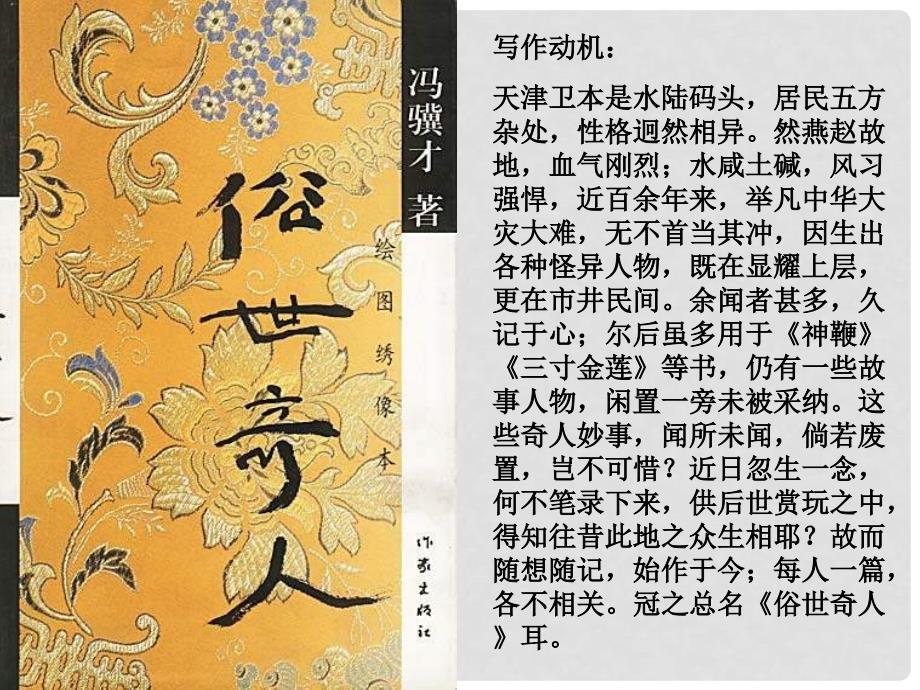 冯骥才 著
俗世奇人
绘图绣像本
作家出版社
写作动机：
天津卫本是水陆码头，居民五方
杂处，性格迥然相异。然燕赵故
地，血气刚烈；水咸土碱，风习
强悍，近百余年来，举凡中华大
灾大难，无不首当其冲，因生出
各种怪异人物，既在显耀上层，
更在市井民间。余闻者甚多，久
记于心；尔后虽多用于《神鞭》
《三寸金莲》等书，仍有一些故
事人物，闲置一旁未被采纳。这
些奇人妙事，闻所未闻，倘若废
置，岂不可惜？近日忽生一念，
何不笔录下来，供后世赏玩之中，
得知往昔此地之众生相耶？故而
随想随记，始作于今；每人一篇，
各不相关。冠之总名《俗世奇人
》耳。